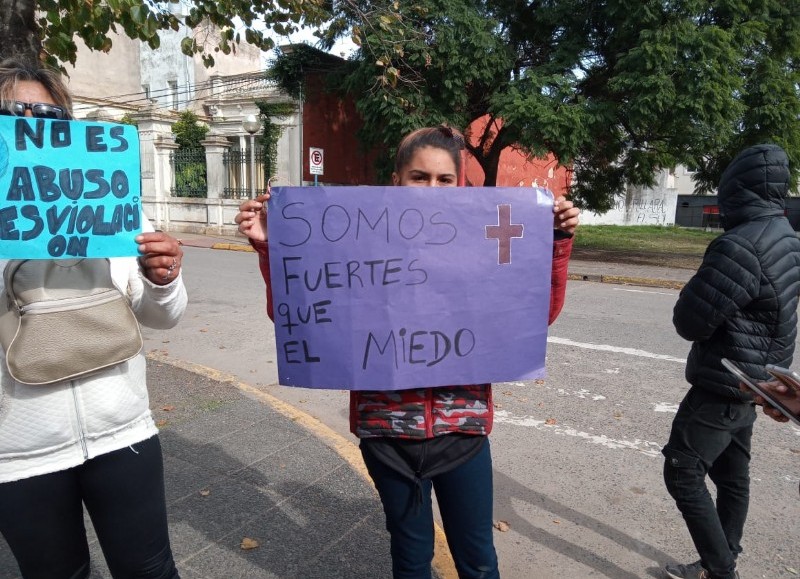 NO ES
ABUSO
ES VIOLACI
ON
SOMOS +
FUERTES
qUE
EL MiEDO
E